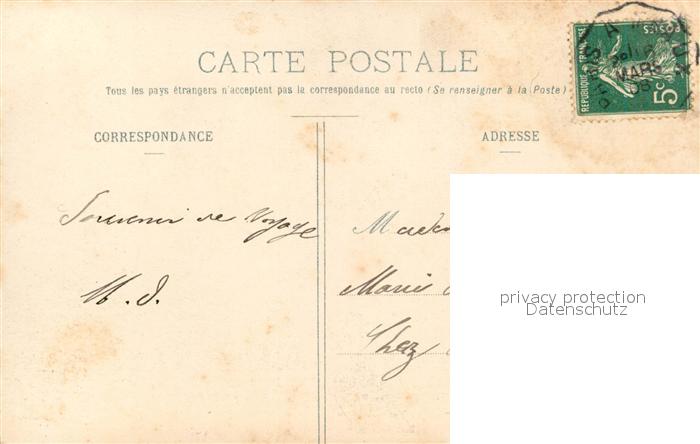 CARTE POSTALE
Tous les pays étrangers n'acceptent pas la correspondance au recto (Se renseigner à la Poste)
CORRESPONDANCE
ADRESSE
REPUBLIQUE FRANÇAISE
POSTES
5c
PARIS A
MARS
08
Souvenir de Voyage
M. J.
Marie
Chez
privacy protection
Datenschutz